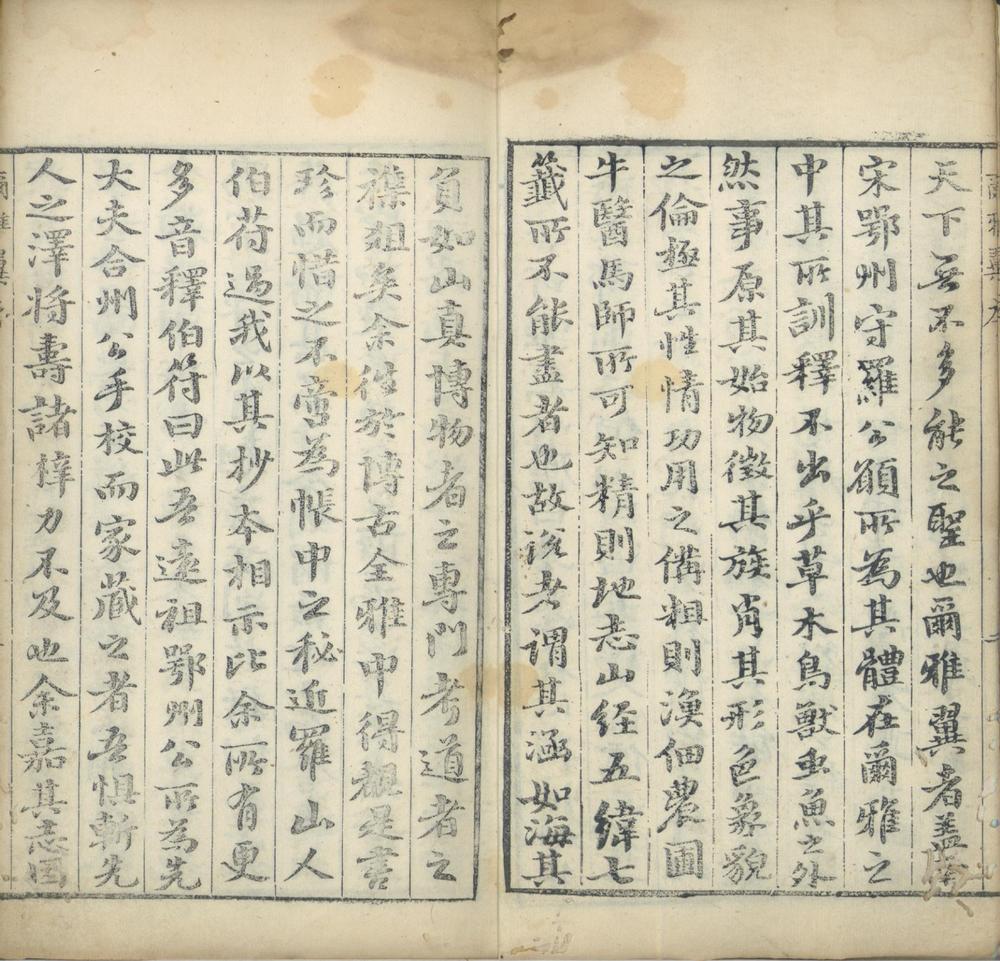 天下無不多能之聖也爾雅翼者蓋
宋鄂州守羅公願所為其體在爾雅之
中其所訓釋不出乎草木鳥獸虫魚之外
然事原其始物徵其族肖其形色象貌
之倫極其性情功用之備粗則漁佃農圃
牛醫馬師所可知精則地志山経五緯七
籖所不能盡者也故談者謂其涵如海其
負如山真博物者之專門考道者之
襟狙矣余徃於博古全雅中得覩是書
珍而惜之不啻為帳中之秘近羅山人
伯苻過我以其抄夲相示比余所有更
多音釋伯符曰此吾遠祖鄂州公所為先
大夫合州公手校而家藏之者吾惧斬先
人之澤將壽諸梓力不及也余嘉其志因